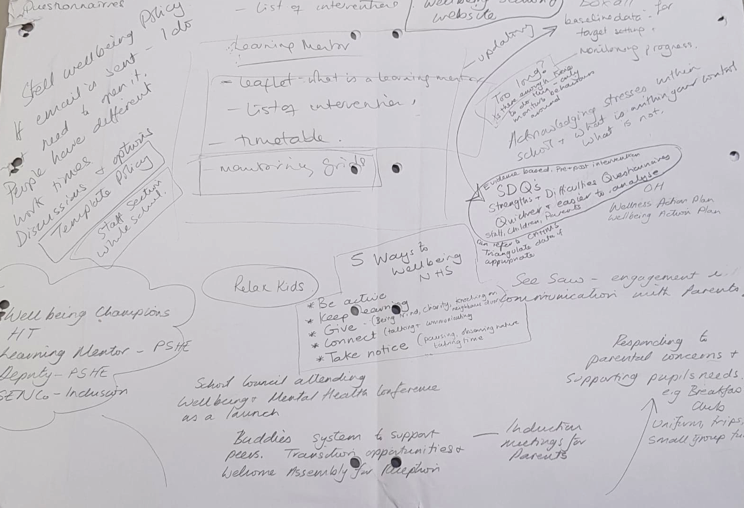 Questionnaires
- List of interventions
Wellbeing
website
baseline data for
target setting,
- monitoring progress.
- updating
Staff wellbeing Policy
If email is sent - I do
not need to open it.
People have different
work times
Discussions & options
Template Policy
Staff section
whole school.
Learning Mentor
- leaflet - what is a learning mentor
- List of intervention,
- timetable.
- monitoring grids
Too long?
Acknowledging stresses within
school & what is within your control
what is not.
Evidence based. Pre + post intervention
SDQs
Strengths + Difficulties Questionnaires
Quicker & easier to analyse
Staff, Children, Parents
can refer to CAMHS
Triangulate data if
appropriate
OH
Wellness Action Plan
Wellbeing Action Plan
5 Ways to
Wellbeing
NHS
* Be active
* Keep learning
* Give - (Being kind, charity,
* Connect (talking + communicating
* Take notice
Relax Kids
See Saw - engagement &
communication with Parents.
Wellbeing Champions
HT
Learning Mentor - PSHE
Deputy - PSHE
SENCo - Inclusion
School Council attending
Wellbeing & Mental Health Conference
as a launch
Buddies system to support
peers. Transition opportunities &
Welcome Assembly for Reception
- Induction
meetings for
Parents
Responding to
parental concerns +
Supporting pupils needs
e.g Breakfast
Club
Uniform, trips,
small group